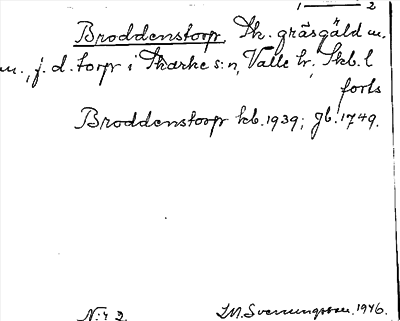 1 — 2
Broddenstorp, Sk. gräsgäld m.
m., f. d. torp i Skarke s:n, Valle hr, Skb. l
forts
Broddenstorp kb. 1939; gb. 1749.
N:r 2
I.M. Svenungsson. 1946.